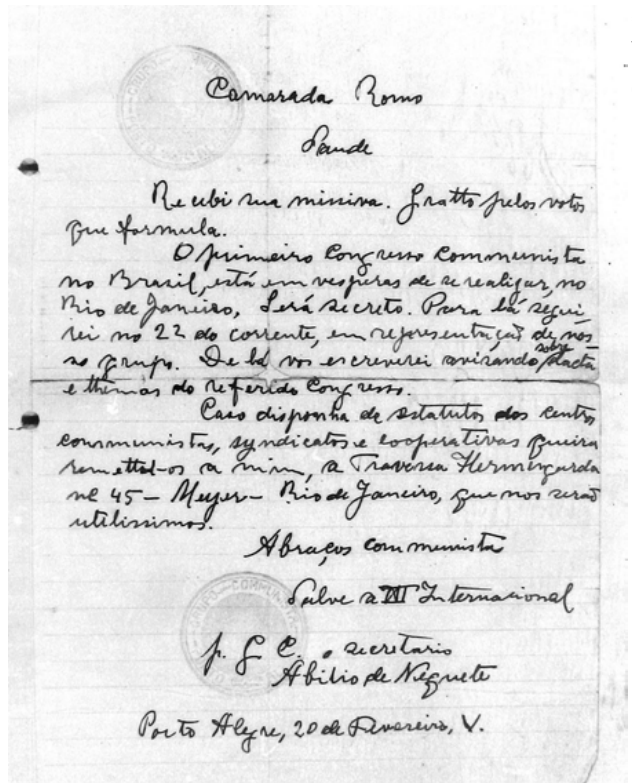 Camarada Romo
Saude
Recibi sua missiva. Gratto pelos votos
que formula.
O primeiro Congresso Communista
no Brasil, está em vesperas de se realizar, no
Rio de Janeiro, Será secreto. Para lá segui-
rei no 22 do corrente, em representação de nos-
so grupo. De lá vos escreverei avisando sobre dacta
e themas do referido Congresso.
Caso disponha de estatutos dos centros
communistas, syndicatos e cooperativas queira
remettel-os a mim, a Travessa Hermengarda
nº 45 – Meyer – Rio de Janeiro, que nos serão
utilissimos.
Abraços communista
Salve a III Internacional
p. G C. o secretario
Abilio de Nequete
Porto Alegre, 20 de Fevereiro, V.
GRUPO COMMUNISTA